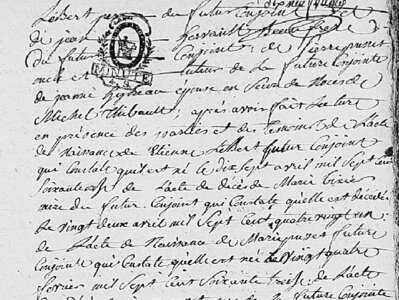 Lebert père du futur Conjoint
Di jean hervault Beaufrere
du futur Conjoint; de pierre prunet
oncle et tuteur de la future Conjointe
MINUTE
de jeanne gerbeau epouse en Secon de Noces de
Michel Thibault; après avoir fait Lecture
en présence des parties et de temoins de L'acte
de Naissance de Etienne Lebert futur Conjoint
qui Constate qu'il est né le dix Sept avril mil Sept Cent
Soixante de L'acte de décès de Marie
mère du futur Conjoint qui Constate qu'elle est décédée
Le vingt deux avril mil Sept Cent quatre vingt un;
de L'acte de Naissance de Marie prunet future
Conjointe qui Constate qu'elle est née le Vingt quatre
fevrier mil Sept Cent Soixante treize de L'acte
de la future Conjointe